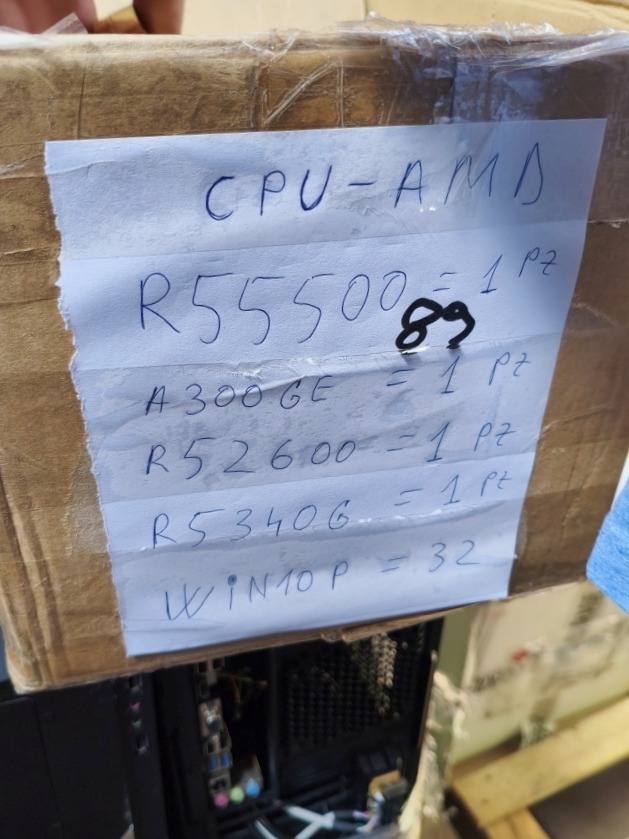 CPU-AMD
R55500 = 1 PZ
89
A300GE = 1 PZ
R52600 = 1 PZ
R5340G = 1 PZ
WiN10P = 32